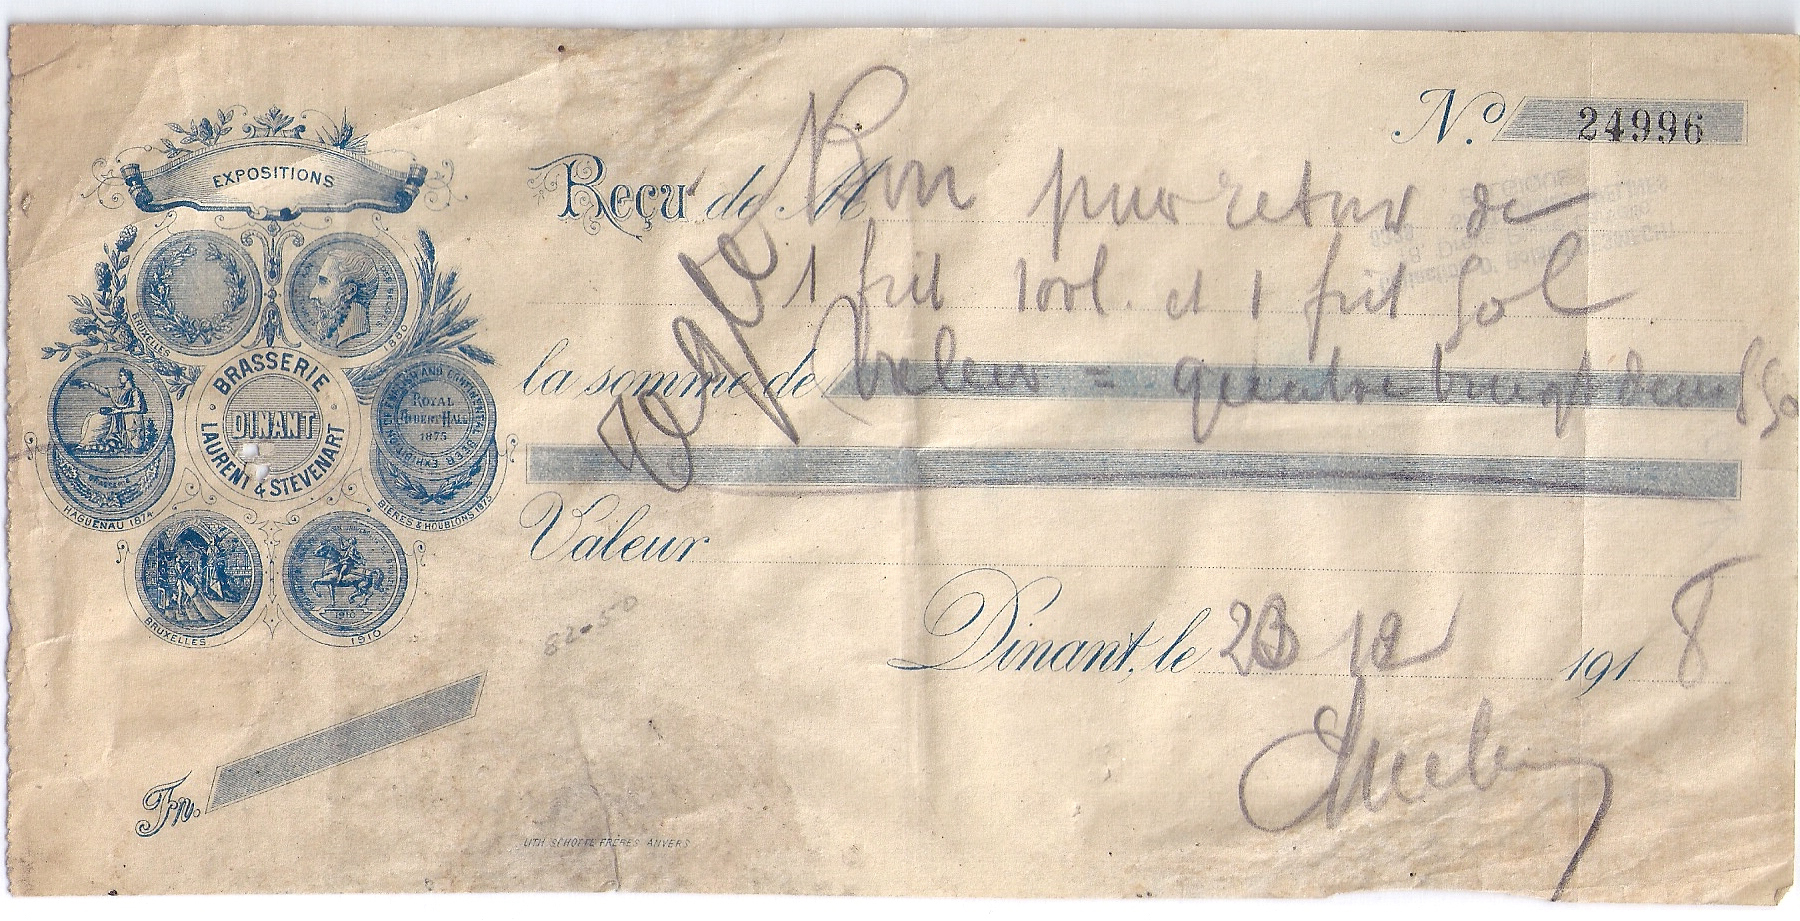 EXPOSITIONS
BRUXELLES
1890
BRASSERIE
DINANT
LAURENT & STÉVENART
ENGLISH AND CONTINENTAL BEER EXHIBITION
ROYAL
ALBERT HALL
1875
HAGUENAU 1874
BIÈRES & HOUBLONS 1875
BRUXELLES
1910
1910
Nº 24996
Reçu de M Bon pour retour de
1 fut 100l. et 1 fut 50l
la somme de Valeur = quatre vingt deux f 50
Valeur
82.50
Dinant, le 23 12 1918
Fr.
LITH SCHOTTE FRÈRES ANVERS